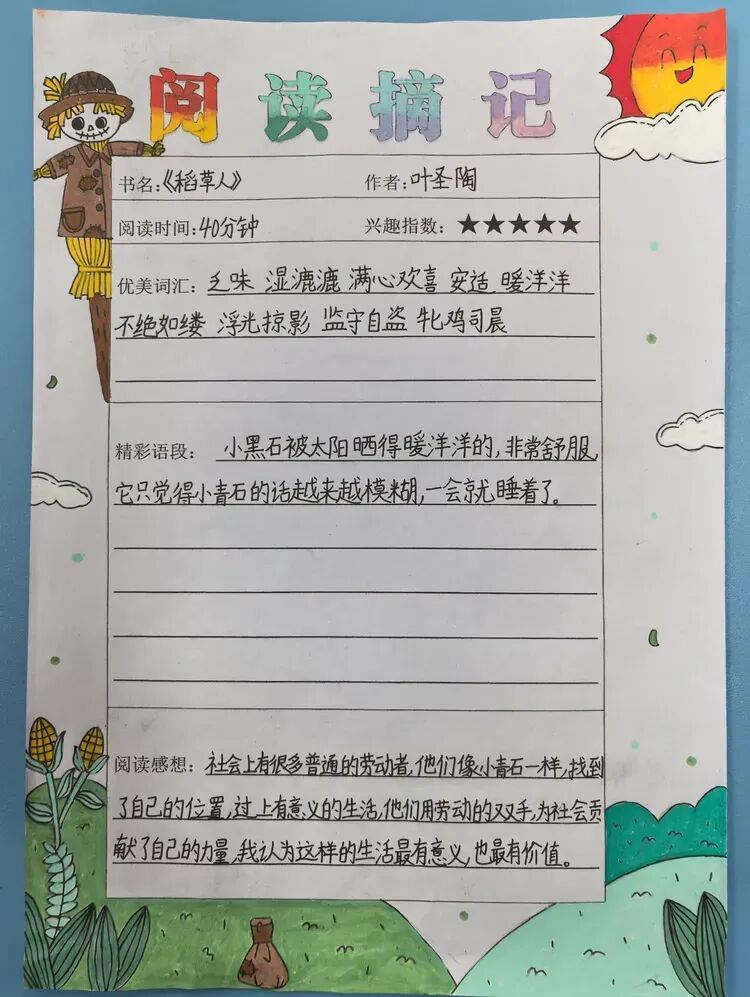 阅读摘记
书名:《稻草人》 作者:叶圣陶
阅读时间:40分钟 兴趣指数:★★★★★
优美词汇:乏味 湿漉漉 满心欢喜 安适 暖洋洋
不绝如缕 浮光掠影 监守自盗 牝鸡司晨
精彩语段:小黑石被太阳晒得暖洋洋的,非常舒服,
它只觉得小青石的话越来越模糊,一会就睡着了。
阅读感想:社会上有很多普通的劳动者,他们像小青石一样,找到
了自己的位置,过上有意义的生活,他们用劳动的双手,为社会贡
献了自己的力量,我认为这样的生活最有意义,也最有价值。